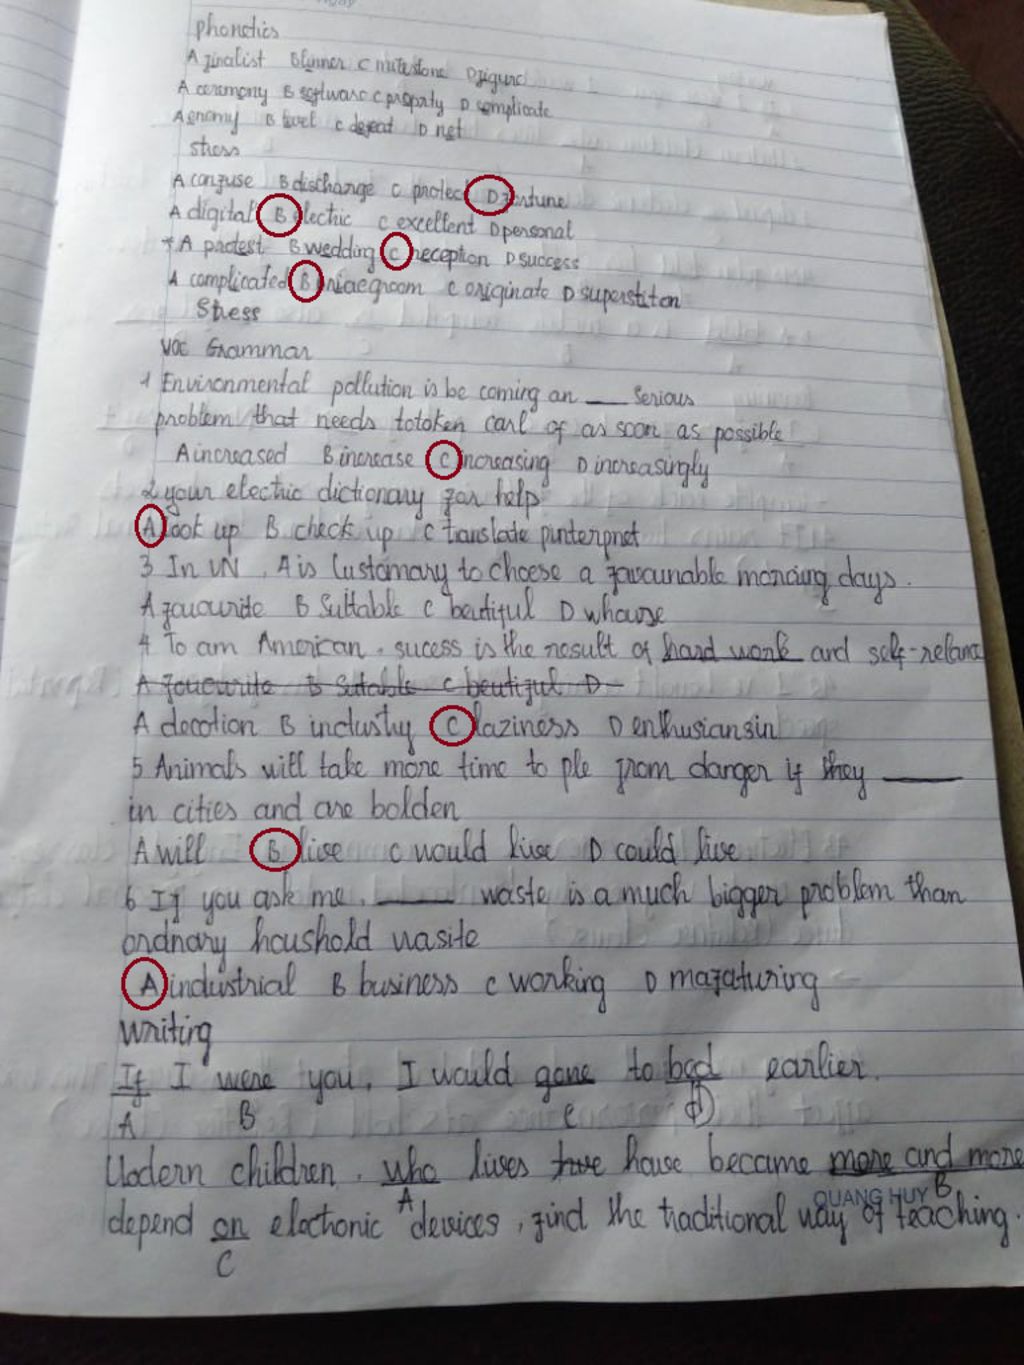 phonetics
A finalist B linner C milestone D figure
A ceremony B software C proparty D complicate
A enomy B level C defeat D net
stress
A confuse B discharge C protec D fortune
A digital B electric C excellent D personal
A protest B wedding C reception D success
A complicated B C originate D superstiton
Stress
voc Grammar
1 Environmental pollution is be coming an ___ Serious
problem that needs of as soon as possible
A increased B increase C increasing D increasingly
2 your electric dictionary for help
A look up B check up C translate
3 In VN . A is Custamary to choose a days.
A favourite B Suttable C beutiful D
4 To am American . sucess is the result of hard work and self-relance
A favourite B Sutable C beutiful D
A B industry C laziness D
5 Animals will take more time to ple from danger if they ___
in cities and are bolden
A will B live C would live D could live
6 If you ask me . ___ waste is a much bigger problem than
ordnary houshold wasite
A industrial B business C working D
writing
If I were you, I would gone to bed earlier.
A B C D
Modern children . who lives have became more and more
A B
QUANG HUY
depend on electronic devices , find the traditional way of teaching.
C